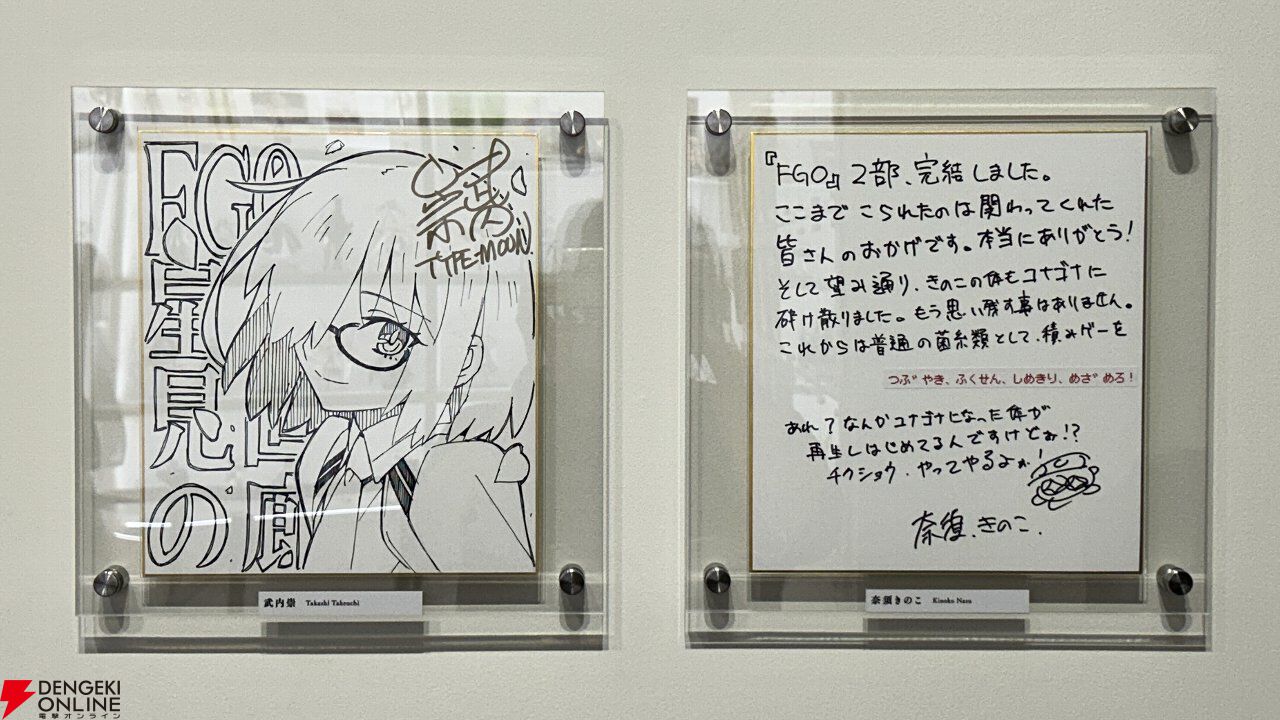 FGO
星見の
回廊
武内崇
TYPE-MOON
武内崇 Takashi Takeuchi
『FGO』2部、完結しました。
ここまでこられたのは関わってくれた
皆さんのおかげです。本当にありがとう!
そして望み通り、きのこの体もコナゴナに
砕け散りました。もう思い残す事はありません。
これからは普通の菌糸類として、積みゲーを
つぶやき、ふくせん、しめきり、めざめろ!
あれ?なんかコナゴナになった体が
再生しはじめてるんですけどぉ!?
チクショウ、やってやるよぉ!
奈須きのこ.
奈須きのこ Kinoko Nasu
DENGEKI
ONLINE
電撃オンライン